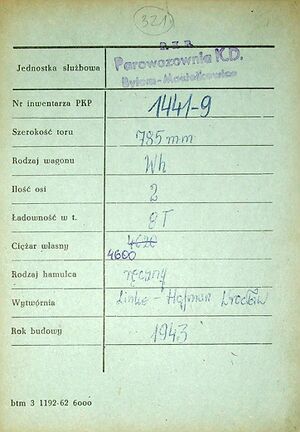 321
P. K. P.
Jednostka służbowa Parowozownia K.D.
Bytom-Maciejkowice
Nr inwentarza PKP 1441-9
Szerokość toru 785 mm
Rodzaj wagonu Wh
Ilość osi 2
Ładowność w t. 8T
Ciężar własny 4620
4600
Rodzaj hamulca ręczny
Wytwórnia Linke-Hofman Wrocław
Rok budowy 1943
btm 3 1192-62 6000